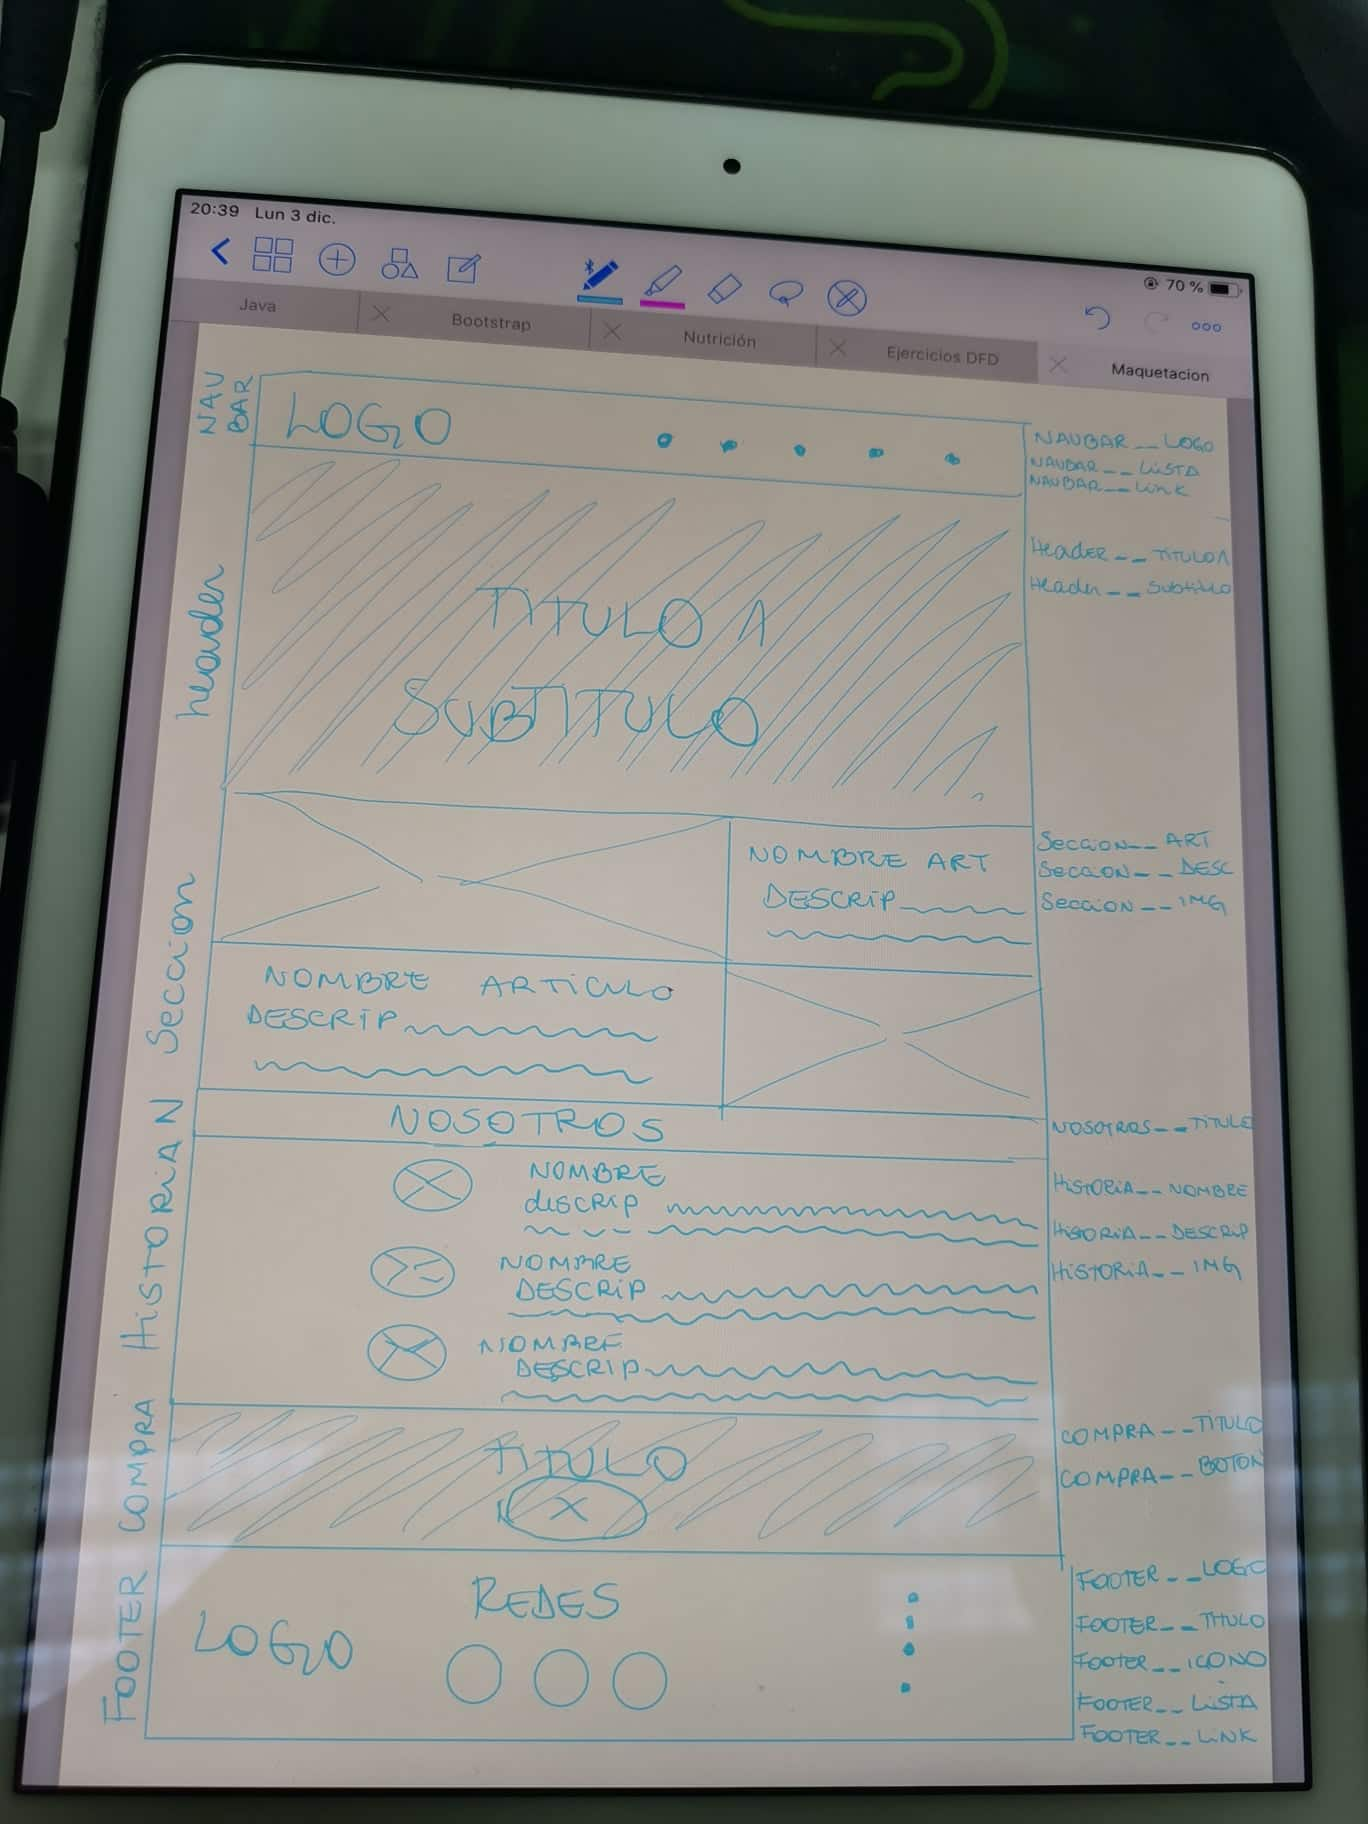 20:39 Lun 3 dic.
70 %
Java
Bootstrap
Nutrición
Ejercicios DFD
Maquetacion
NAV
BAR
LOGO
NAVBAR__LOGO
NAVBAR__LiSTA
NAVBAR__Link
header
TiTULO 1
SUBTITULO
HeadER__TiTULO 1
Header__Subtitulo
Seccion
NOMBRE ART
DESCRiP
Seccion__ART
SeccioN__DESC
SecciON__iMG
NOMBRE ARTiCULO
DESCRiP
NOSOTROS
NOSOTROS__TiTULE
HiSTORiA
NOMBRE
diSCRiP
NOMBRE
DESCRiP
NOMBRE
DESCRiP
HiSTORiA__NOMBRE
HiSTORiA__DESCRiP
HiSTORiA__iMG
COMPRA
TiTULO
X
COMPRA__TiTULO
COMPRA__BOTON
FOOTER
LOGO
REDES
FOOTER__LOGO
FOOTER__TiTULO
FOOTER__iCONO
FOOTER__LiSTA
FOOTER__LiNK